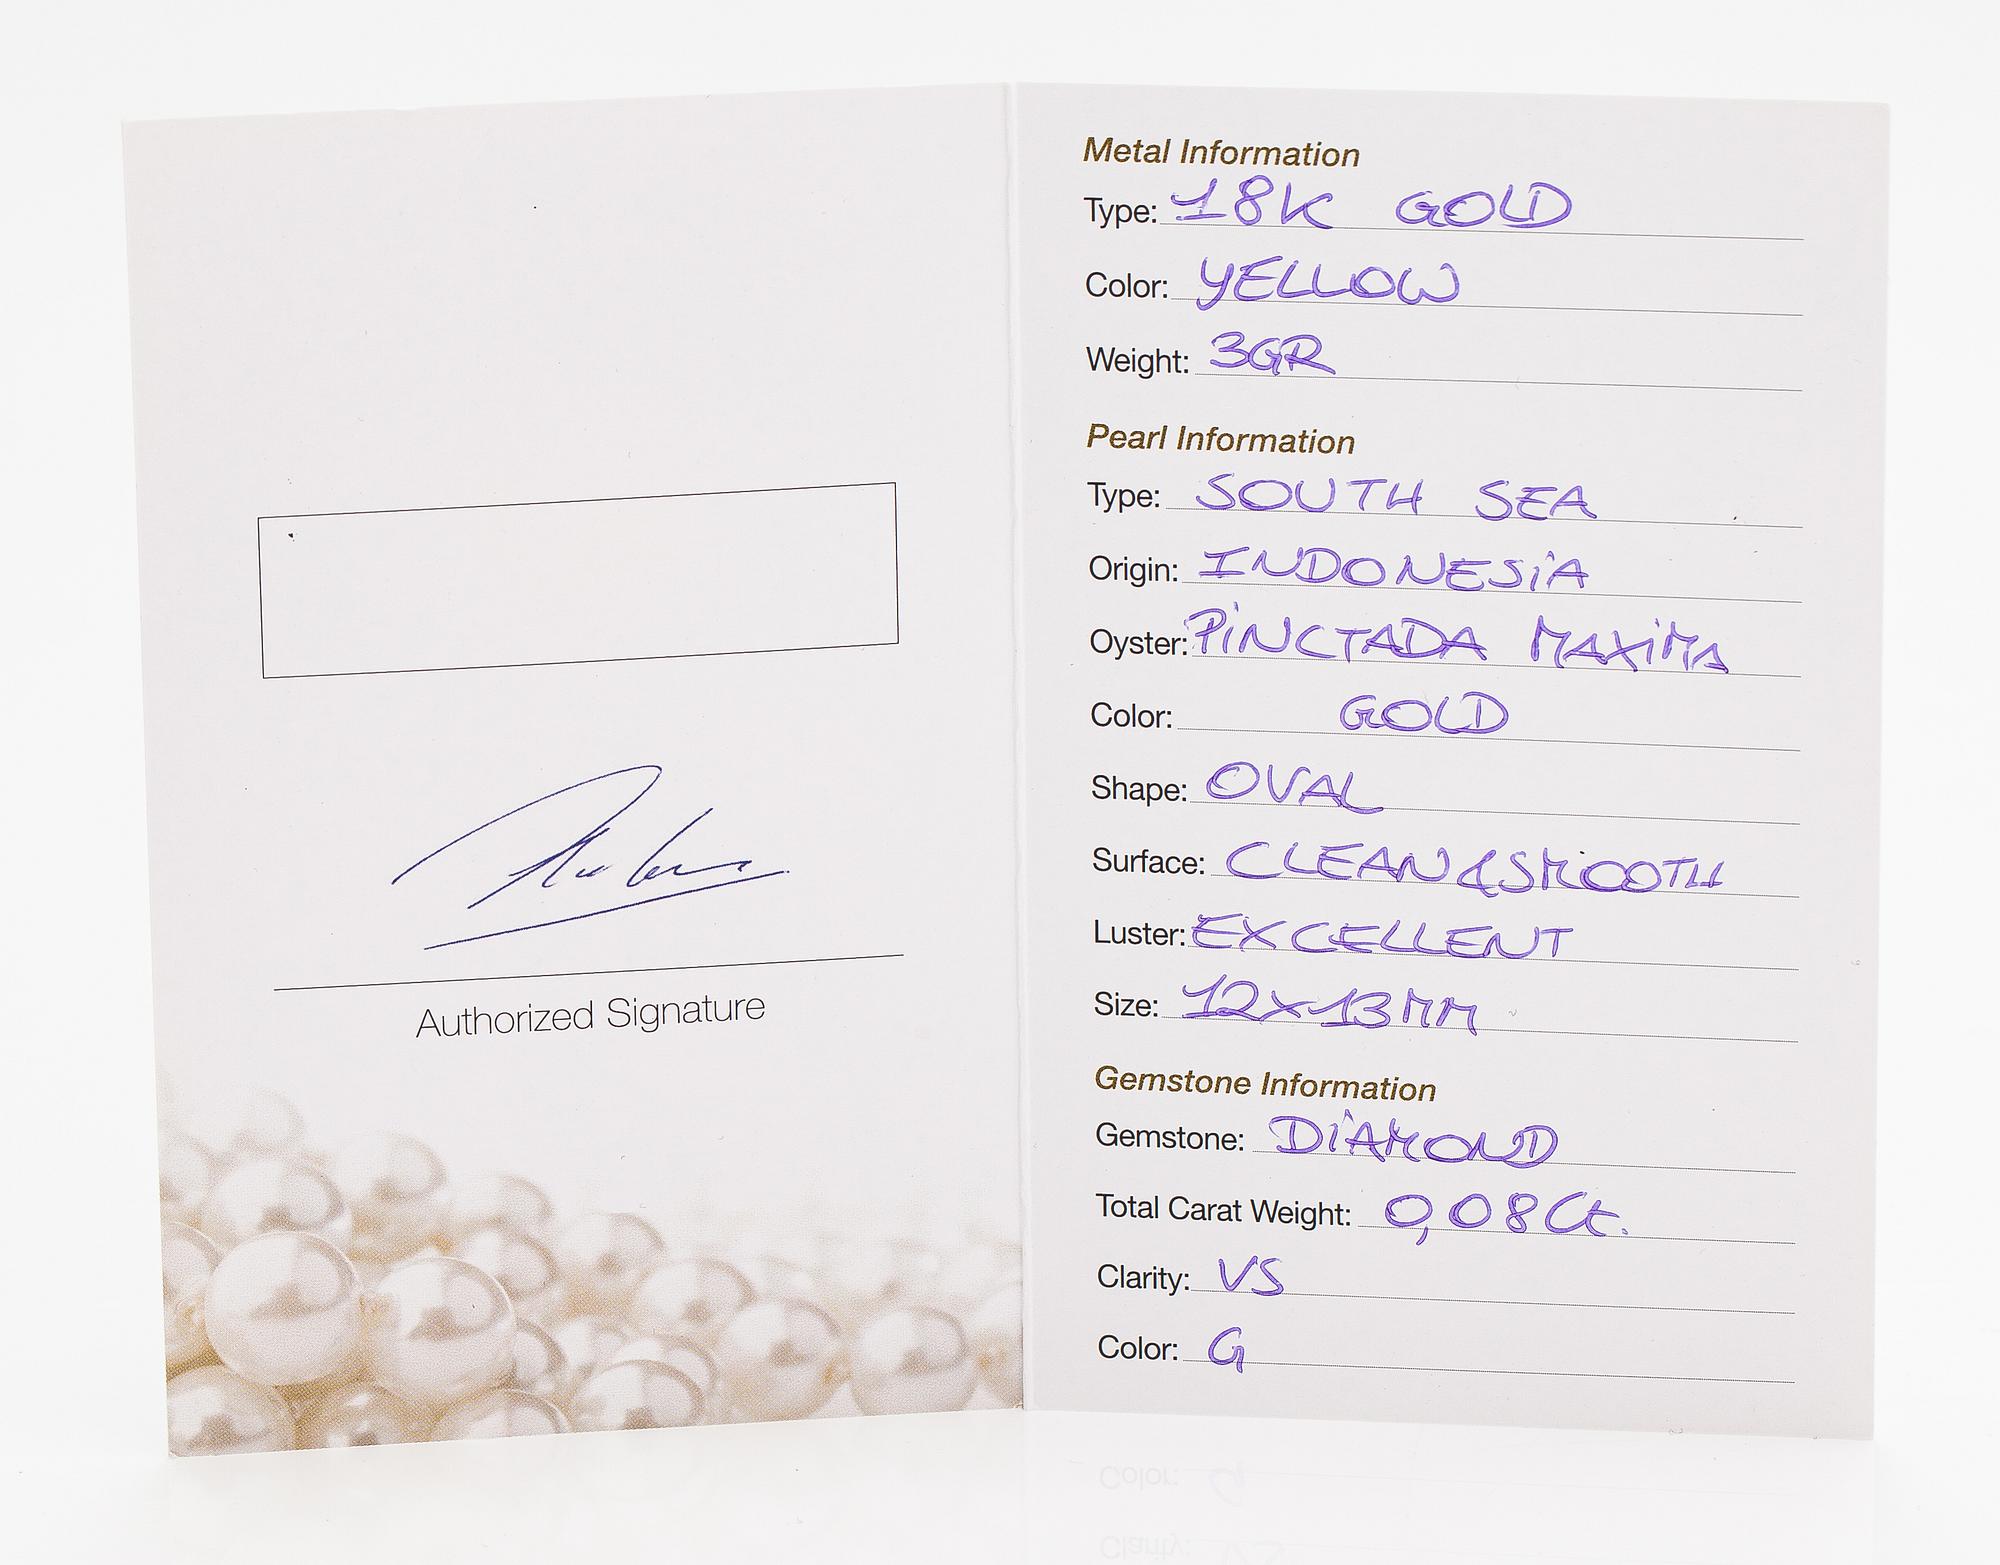 Authorized Signature
Metal Information
Type: 18K GOLD
Color: YELLOW
Weight: 3GR
Pearl Information
Type: SOUTH SEA
Origin: INDONESiA
Oyster: PiNCTADA MAXiMA
Color: GOLD
Shape: OVAL
Surface: CLEAN & SMOOTH
Luster: EXCELLENT
Size: 12x13MM
Gemstone Information
Gemstone: DiAMOND
Total Carat Weight: 0,08 Ct.
Clarity: VS
Color: G